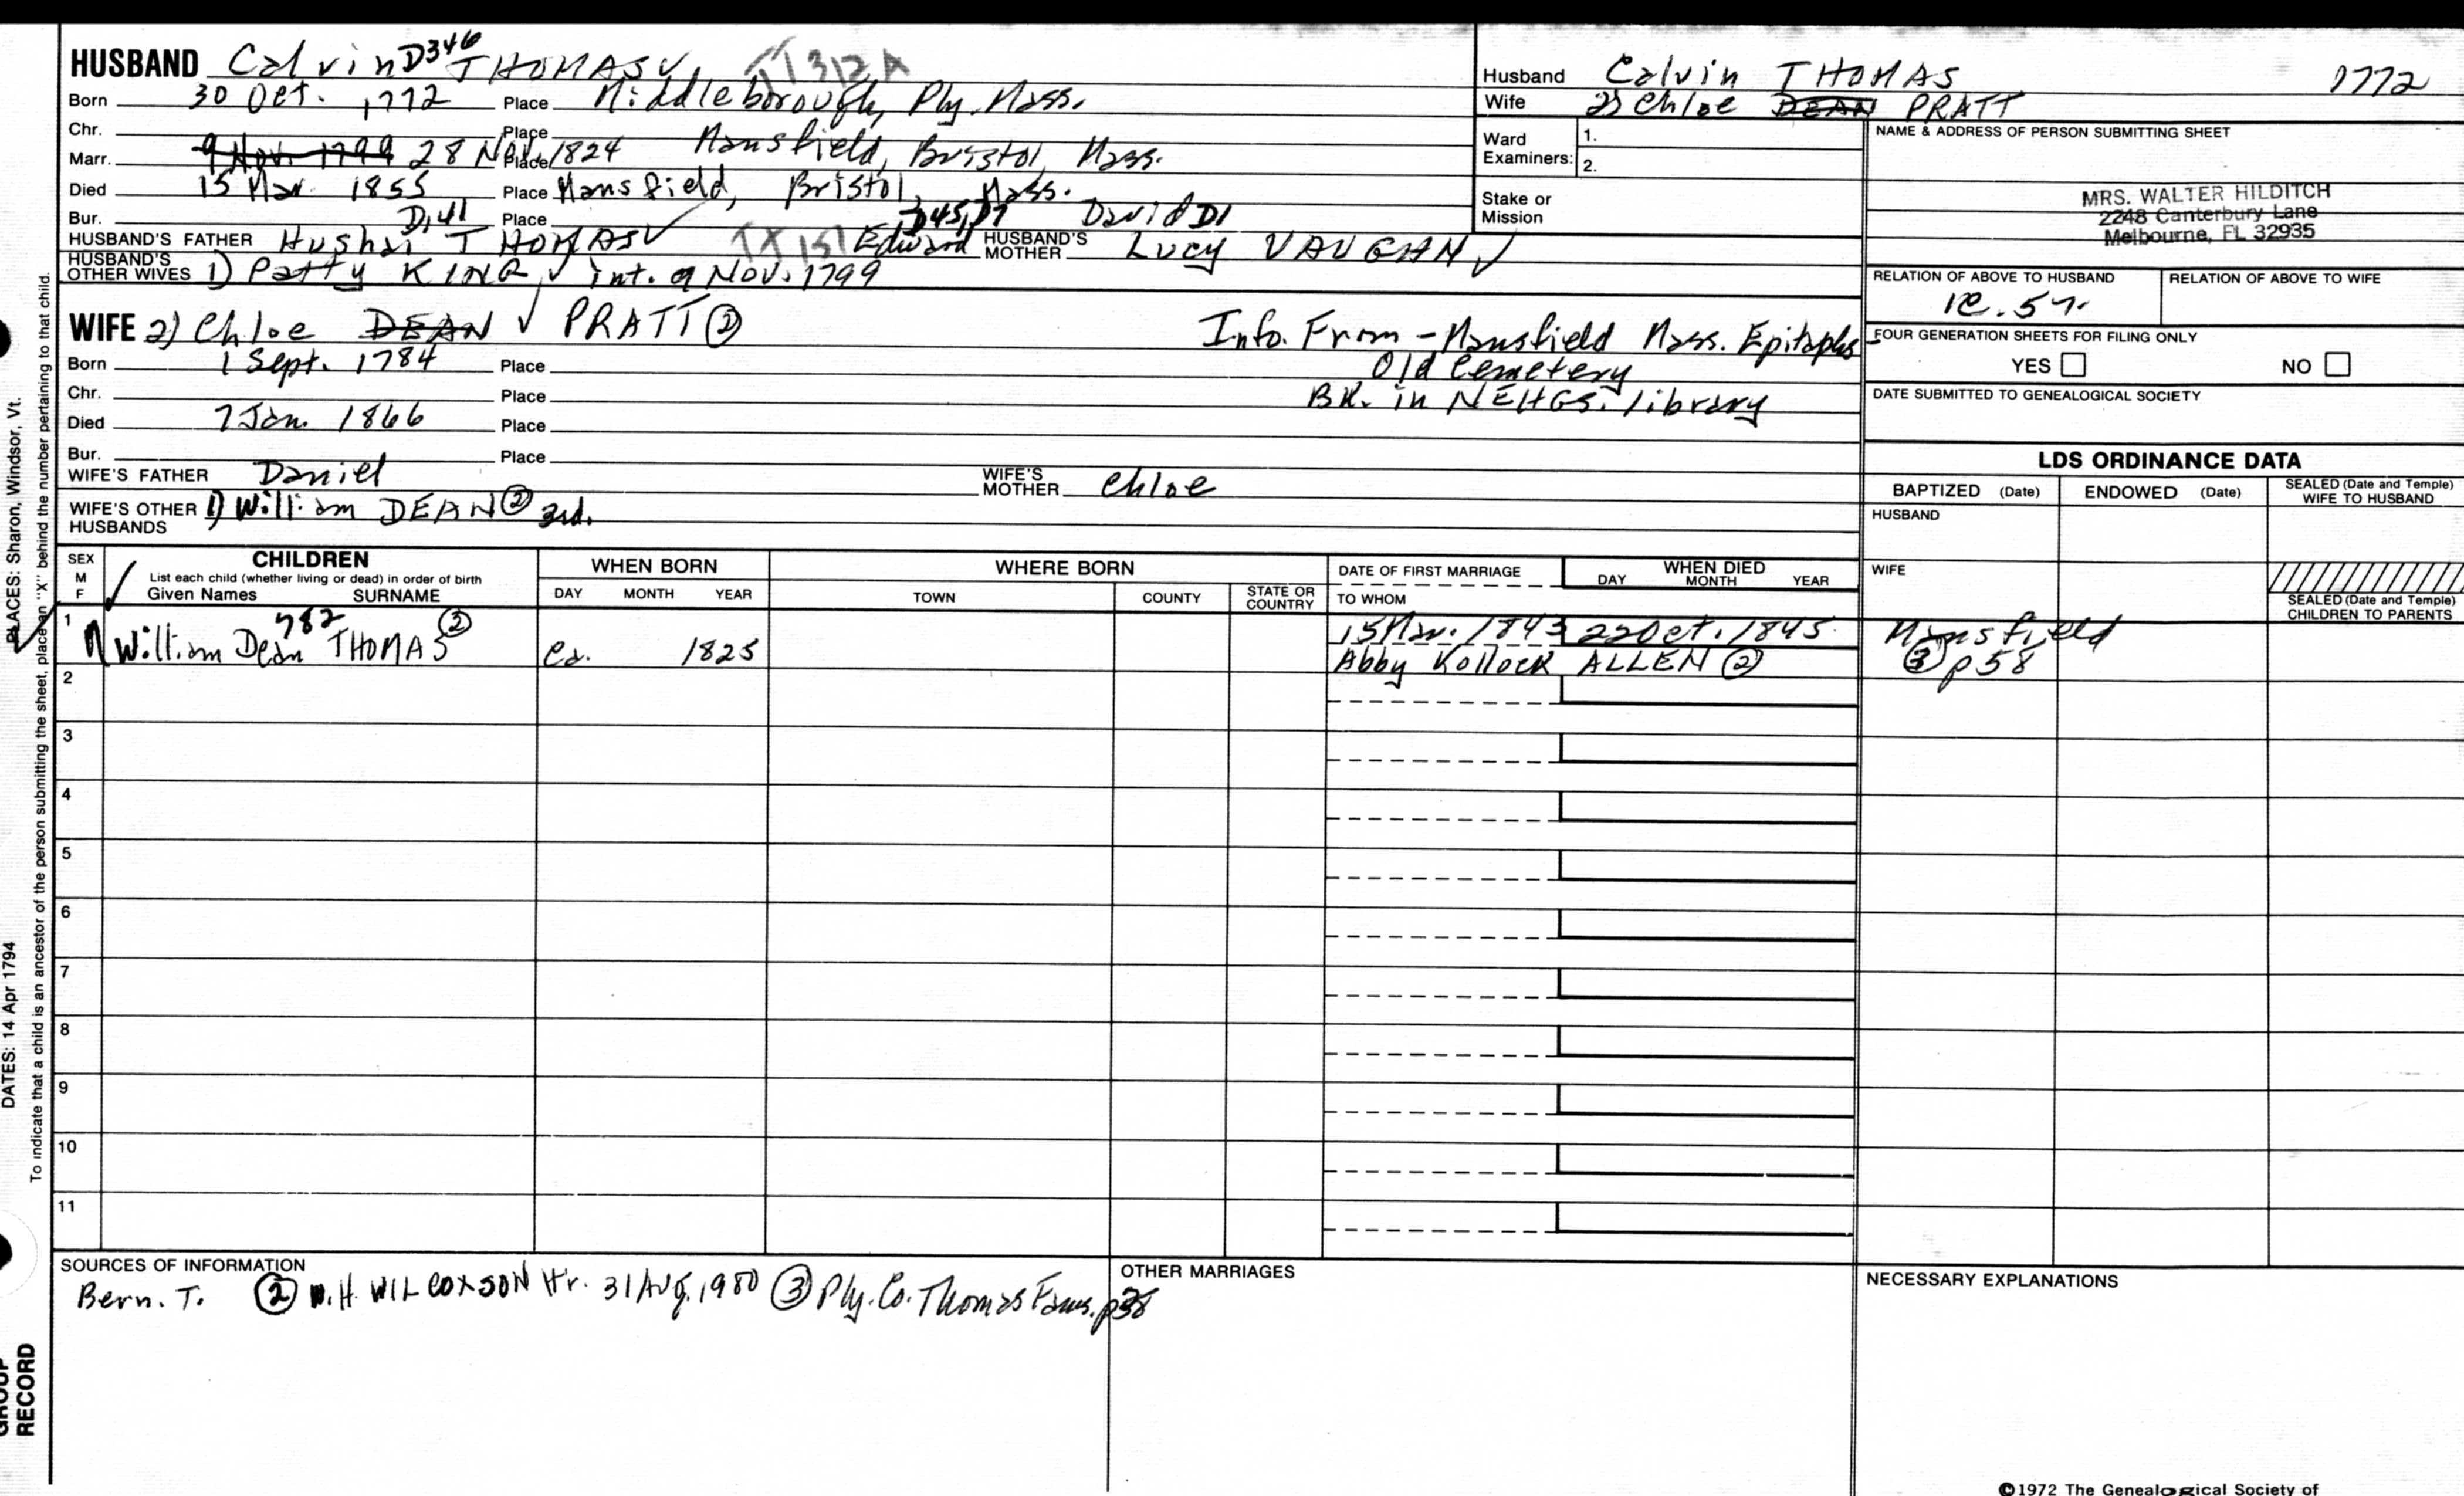 HUSBAND Calvin D346 THOMAS TT312A
Born 30 Oct. 1772 Place Middleborough, Ply. Mass.
Chr. Place
Marr. 9 Nov. 1799 28 Nov. 1824 Place Mansfield, Bristol, Mass.
Died 15 Mar. 1855 Place Mansfield, Bristol, Mass.
Bur. Place
D,41 D45,D7 David D1
HUSBAND'S FATHER Hushai THOMAS TX151 Edward HUSBAND'S MOTHER Lucy VAUGHAN
HUSBAND'S OTHER WIVES 1) Patty KING int. 9 Nov. 1799
WIFE 2) Chloe DEAN PRATT ②
Born 1 Sept. 1784 Place
Chr. Place
Died 7 Jan. 1866 Place
Bur. Place
Info. From - Mansfield Mass. Epitaphs
Old Cemetery
BK. in NEHGS. library
WIFE'S FATHER Daniel WIFE'S MOTHER Chloe
WIFE'S OTHER HUSBANDS 1) William DEAN ② 3rd.
Husband Calvin THOMAS 1772
Wife 2) Chloe DEAN PRATT
Ward Examiners: 1.
2.
Stake or Mission
NAME & ADDRESS OF PERSON SUBMITTING SHEET
MRS. WALTER HILDITCH
2248 Canterbury Lane
Melbourne, FL 32935
RELATION OF ABOVE TO HUSBAND RELATION OF ABOVE TO WIFE
FOUR GENERATION SHEETS FOR FILING ONLY
YES NO
DATE SUBMITTED TO GENEALOGICAL SOCIETY
LDS ORDINANCE DATA
BAPTIZED (Date) ENDOWED (Date) SEALED (Date and Temple) WIFE TO HUSBAND
HUSBAND
WIFE
SEALED (Date and Temple) CHILDREN TO PARENTS
SEX M F CHILDREN WHEN BORN WHERE BORN DATE OF FIRST MARRIAGE WHEN DIED
List each child (whether living or dead) in order of birth
Given Names SURNAME DAY MONTH YEAR TOWN COUNTY STATE OR COUNTRY TO WHOM DAY MONTH YEAR
1 William Dean 782 THOMAS ② ca. 1825 15 Mar. 1843 22 Oct. 1845 Mansfield
Abby Kollock ALLEN ② ③ p58
2
3
4
5
6
7
8
9
10
11
SOURCES OF INFORMATION
Bern. T. ② W.H. WILCOXSON ltr. 31 Aug. 1980 ③ Ply. Co. Thomas Fams.
OTHER MARRIAGES
NECESSARY EXPLANATIONS
©1972 The Genealogical Society of
PLACES: Sharon, Windsor, Vt.
DATES: 14 Apr 1794
To indicate that a child is an ancestor of the person submitting the sheet, place an "X" behind the number pertaining to that child.
GROUP
RECORD